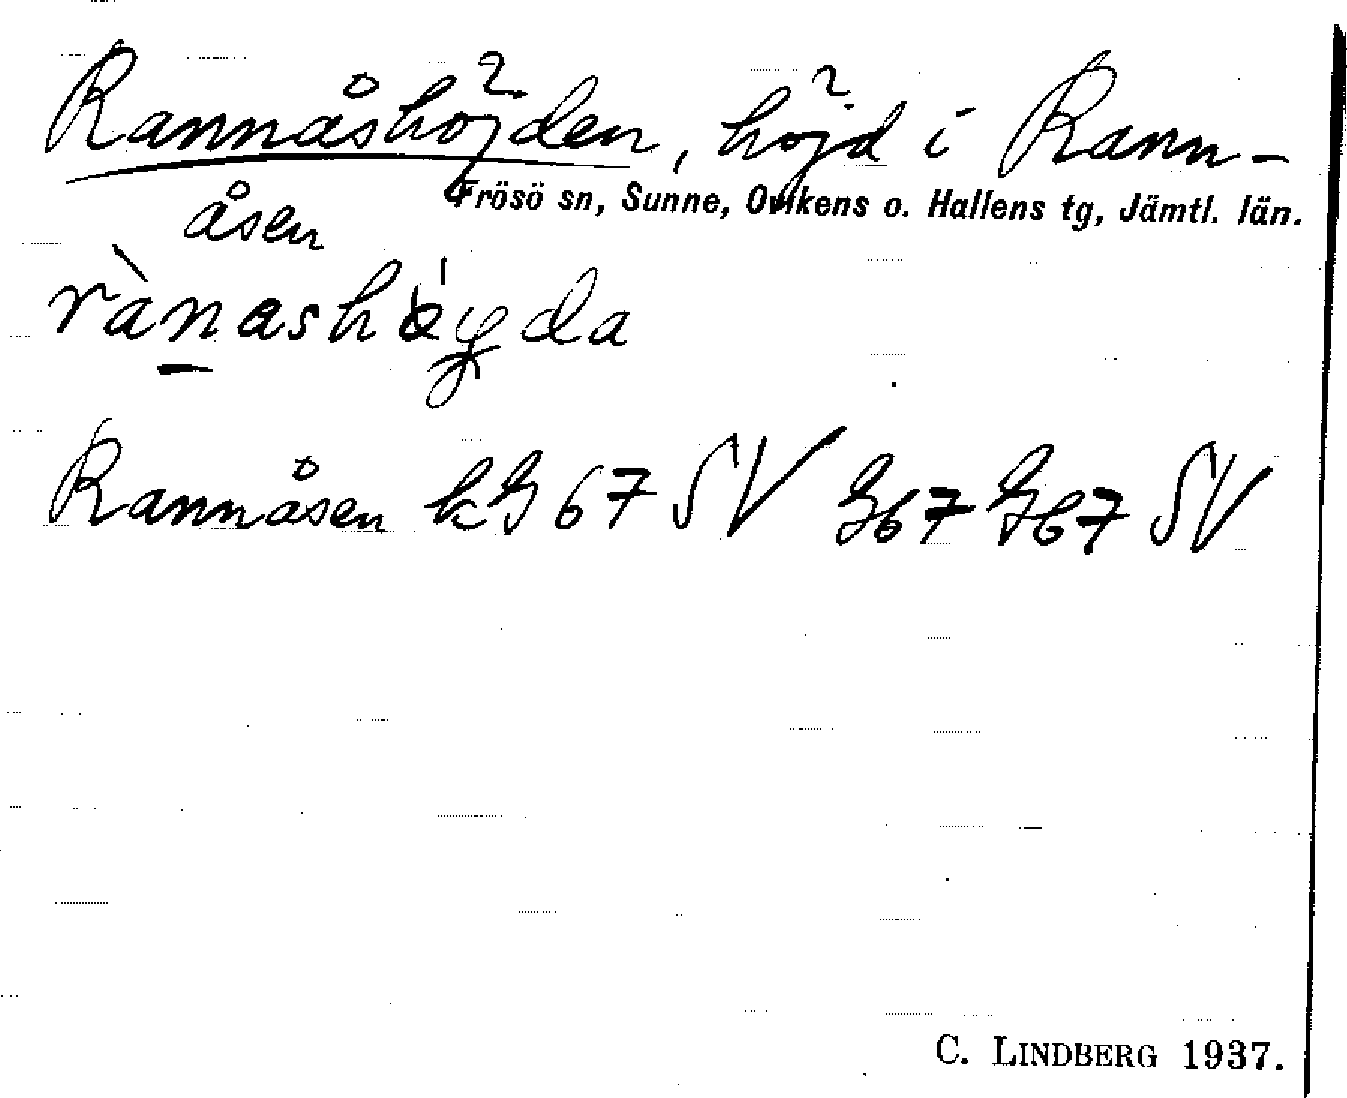 Rannåshöjden, höjd i Rann-
Frösö sn, Sunne, Ovikens o. Hallens tg, Jämtl. län.
åsen
rànashøyda
Rannåsen kG 67 SV G67 H67 SV
C. LINDBERG 1937.